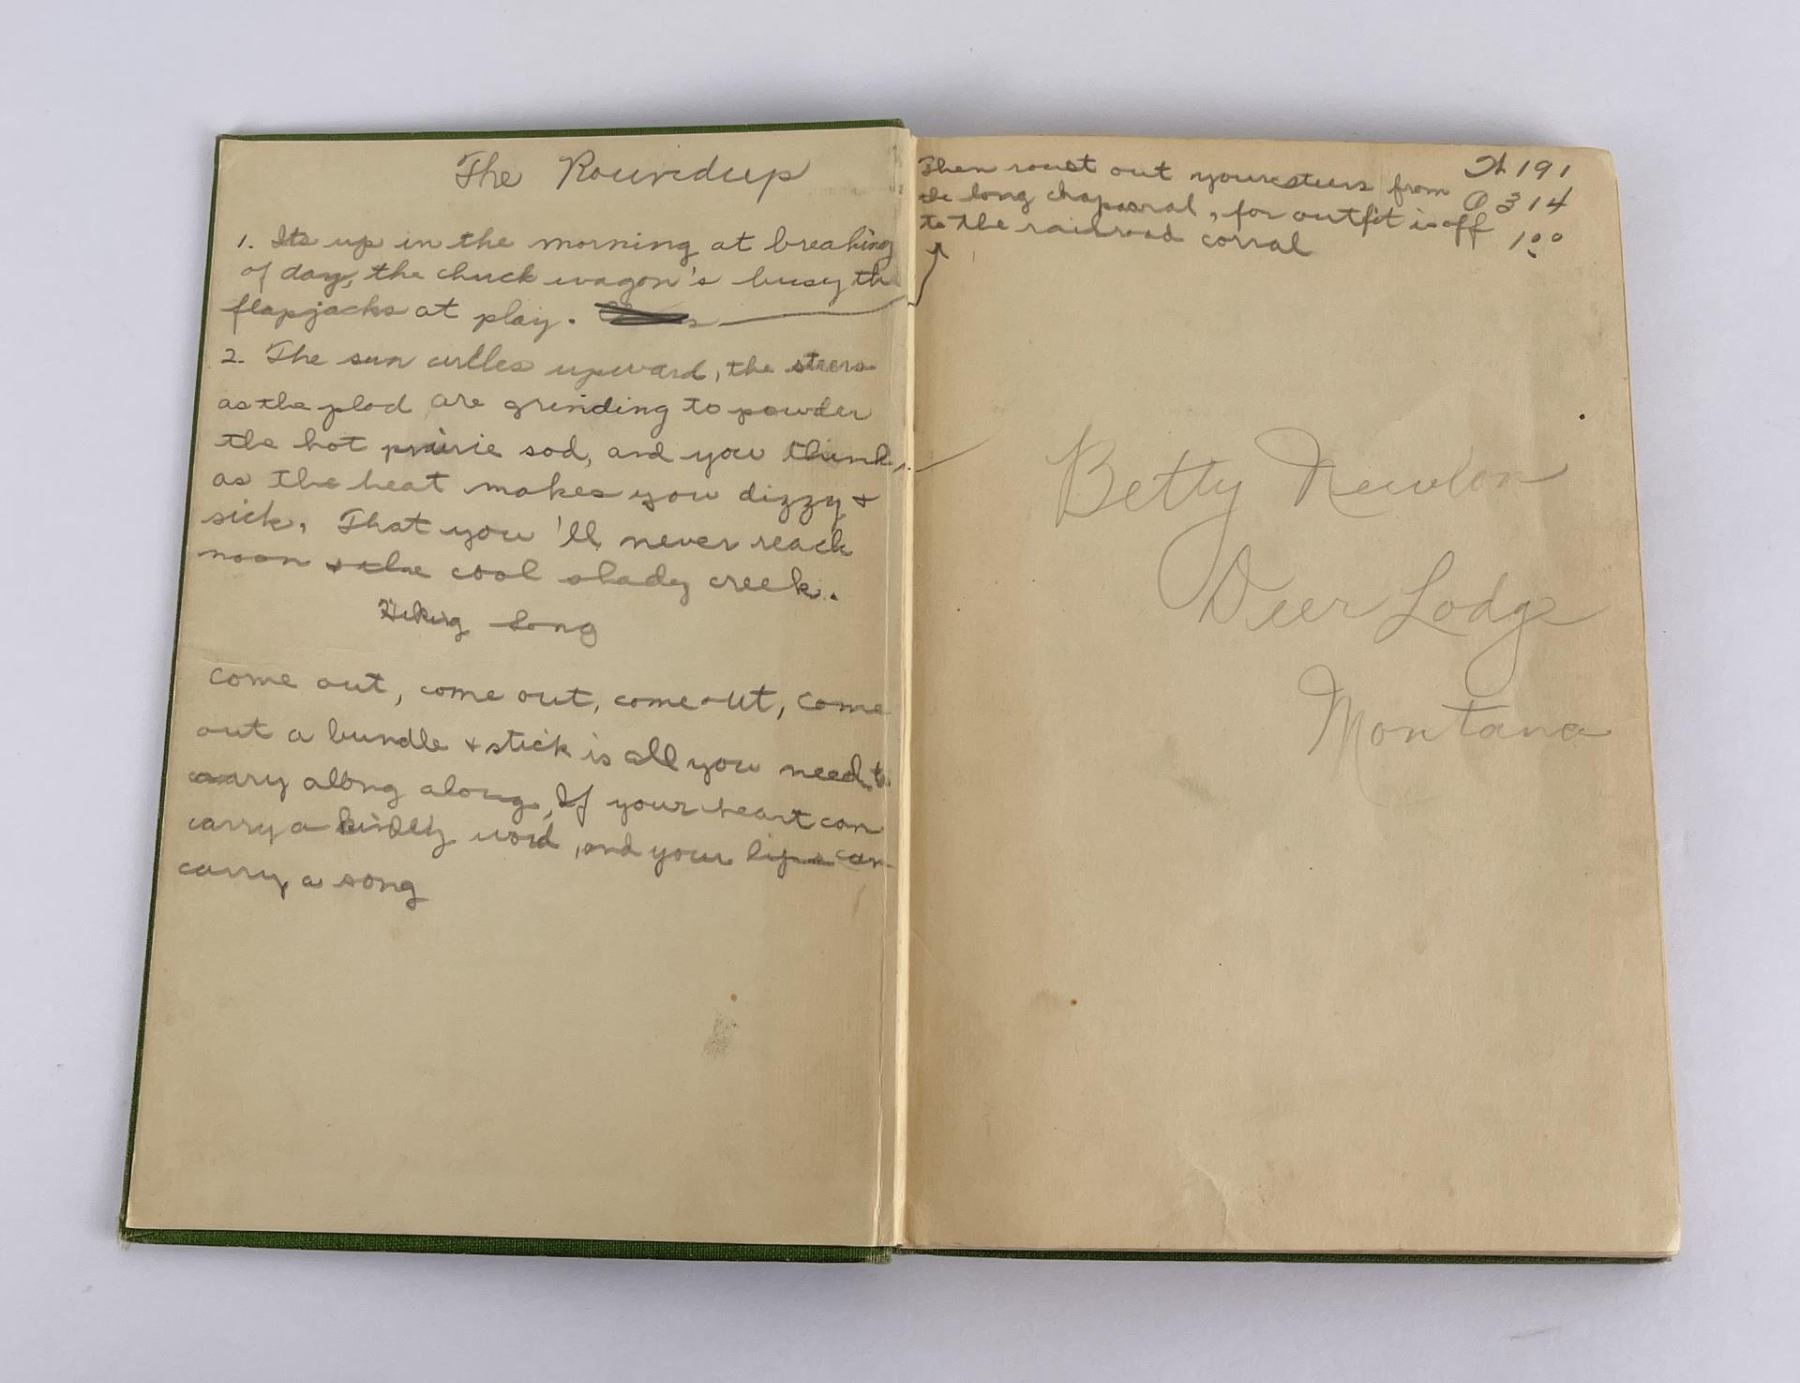 The Roundup
1. Its up in the morning at breaking
of day, the chuck wagon's busy th
flapjacks at play.
2. The sun circles upward, the steers
as the plod are grinding to powder
the hot prairie sod, and you think,
as the heat makes you dizzy +
sick, That you'll never reach
noon + the cool shady creek.
Hiking Song
come out, come out, come out, come
out a bundle + stick is all you need to
carry along along, If your heart can
carry a kindly word, and your lips can
carry a song
Then roust out your steers from
the long chaparral, for outfit is off
to the railroad corral
191
314
1.00
Betty Newlon
Deer Lodge
Montana